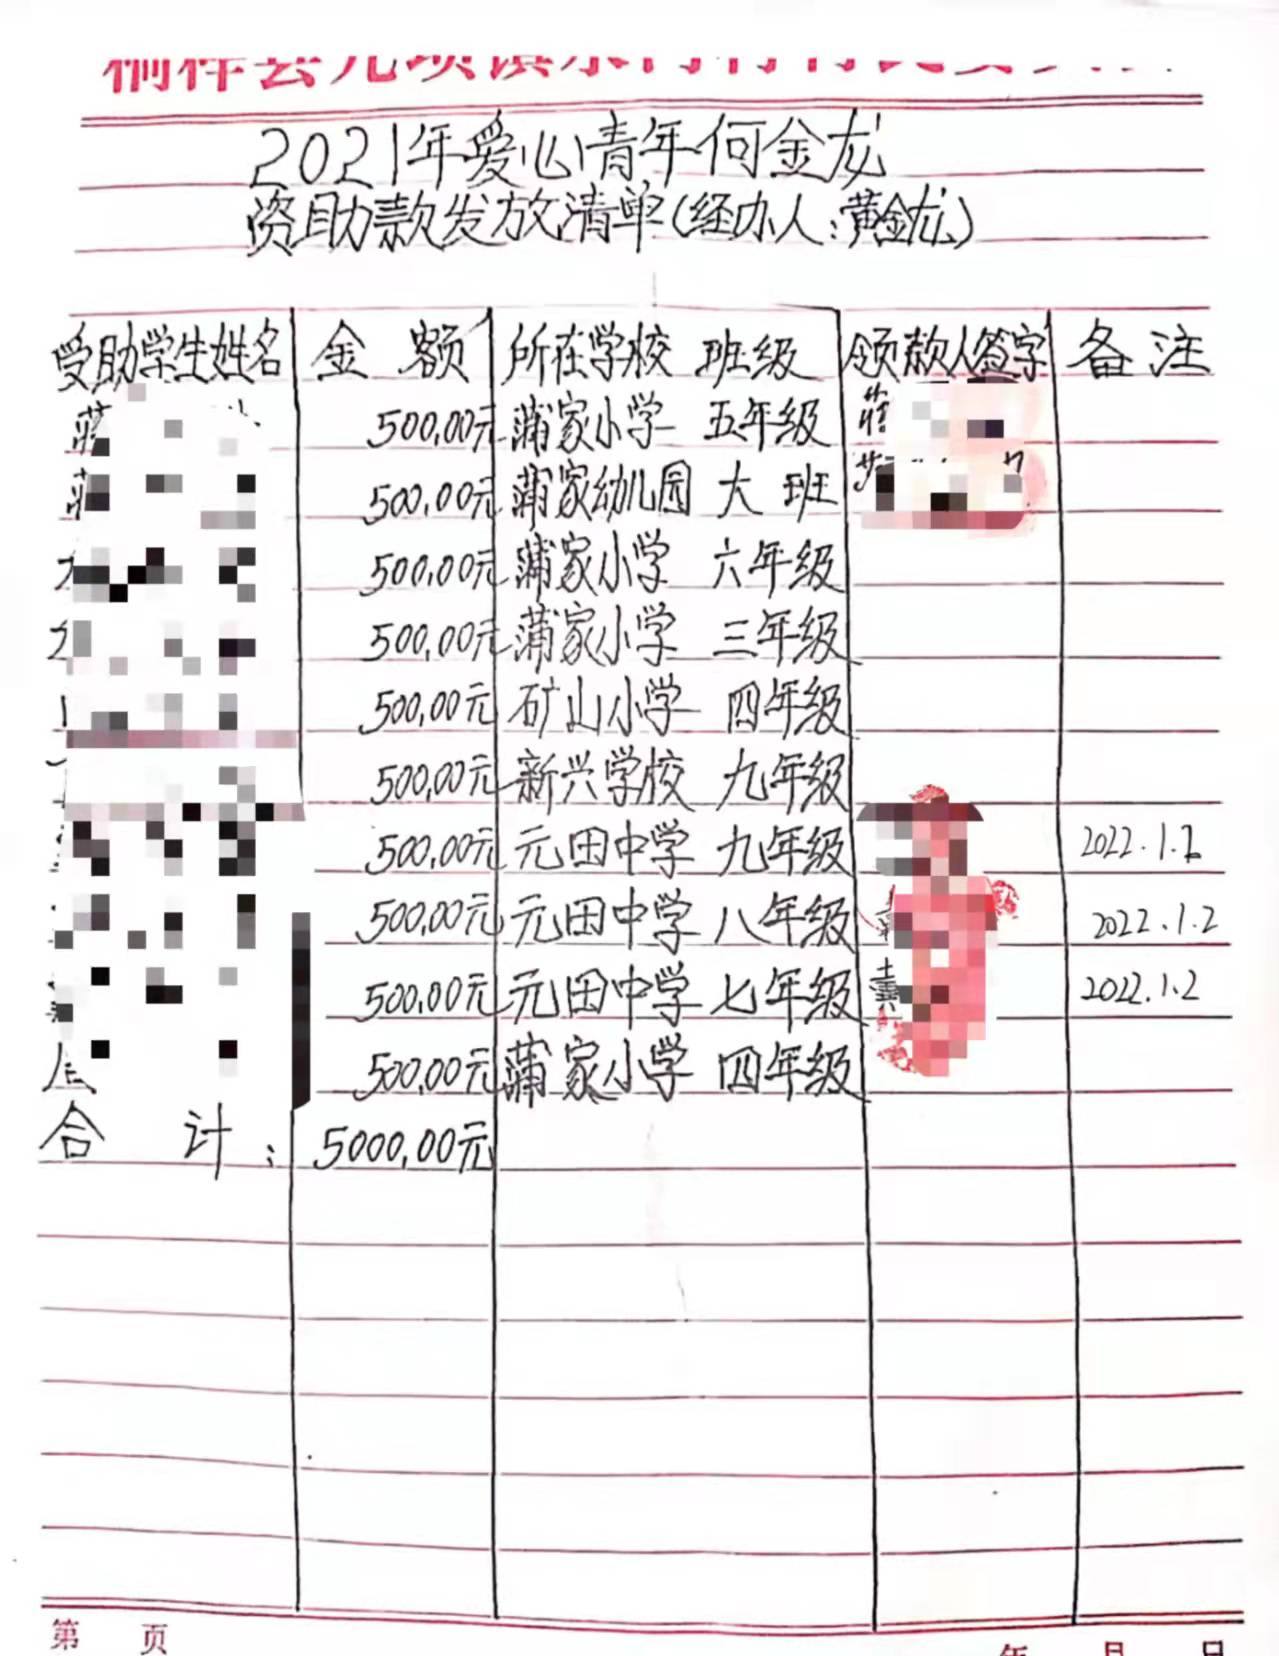 2021年爱心青年何金龙
资助款发放清单(经办人:黄金龙)
受助学生姓名 金额 所在学校 班级 领款人签字 备注
500.00元 蒲家小学 五年级
500.00元 蒲家幼儿园 大班
500.00元 蒲家小学 六年级
500.00元 蒲家小学 三年级
500.00元 矿山小学 四年级
500.00元 新兴学校 九年级
500.00元 元田中学 九年级 2022.1.2
500.00元 元田中学 八年级 2022.1.2
500.00元 元田中学 七年级 2022.1.2
500.00元 蒲家小学 四年级
合计: 5000.00元
第 页 年 月 日